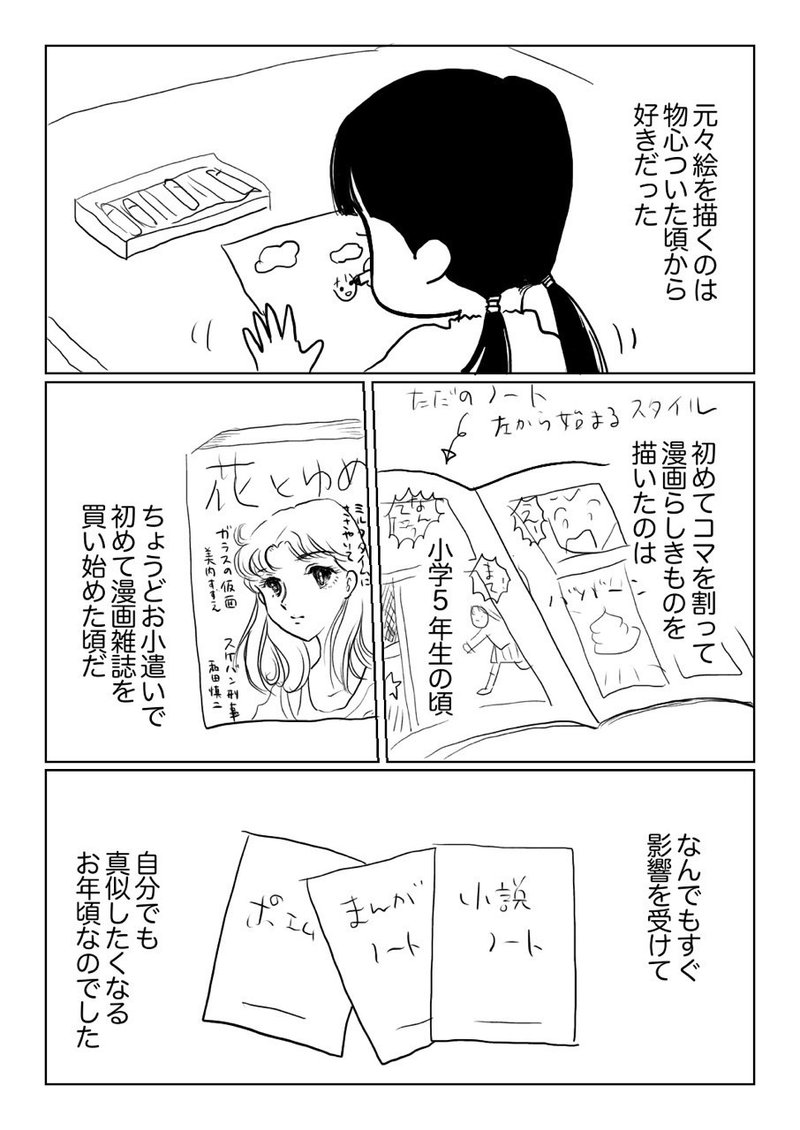 元々絵を描くのは
物心ついた頃から
好きだった
初めてコマを割って
漫画らしきものを
描いたのは
ただのノート
左から始まるスタイル
小学5年生の頃
なんだって
まて
え
バッバーン
ちょうどお小遣いで
初めて漫画雑誌を
買い始めた頃だ
花とゆめ
ミルクタイムに
ささやいて
ガラスの仮面
美内すずえ
スケバン刑事
和田慎二
なんでもすぐ
影響を受けて
小説
ノート
まんが
ノート
ポエム
自分でも
真似したくなる
お年頃なのでした